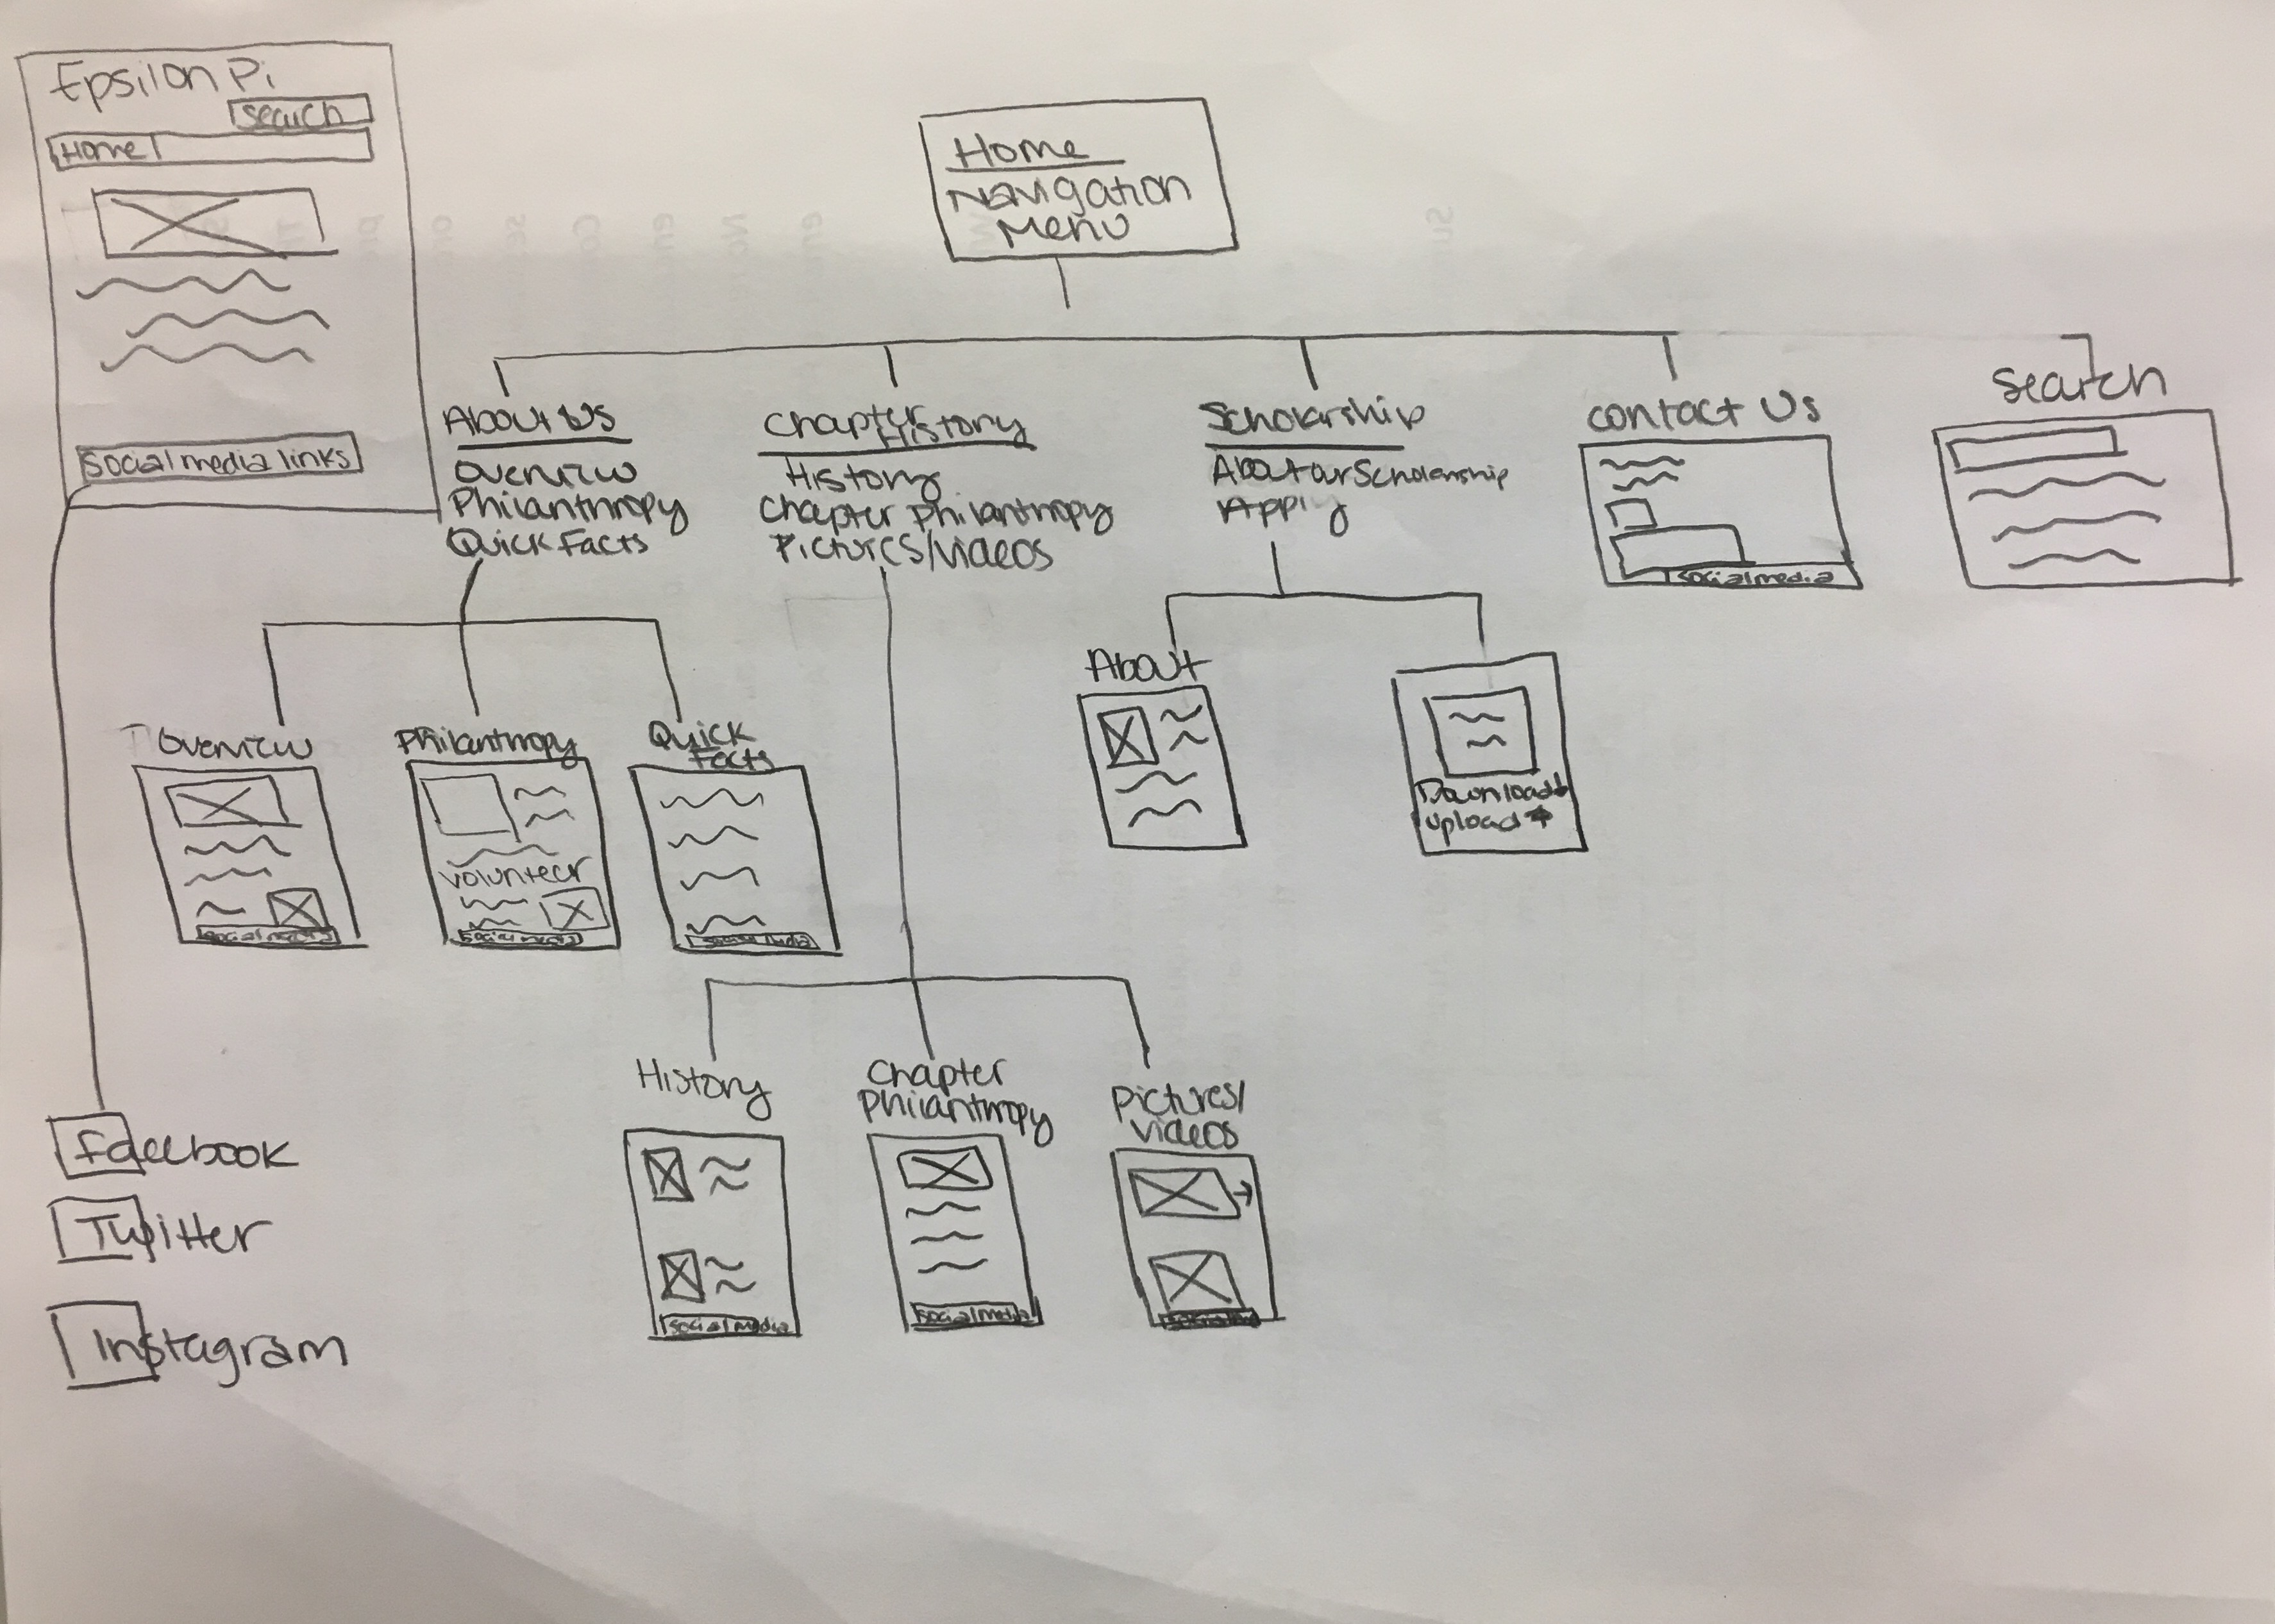 Epsilon Pi
search
Home
Social media links
Home
Navigation
Menu
About Us
Overview
Philanthropy
Quick Facts
Chapter
History
History
Chapter Philanthropy
Pictures/Videos
Scholarship
About our Scholarship
Apply
Contact Us
Social media
Search
Overview
Social media
Philanthropy
Volunteer
Social media
Quick
Facts
Social media
About
Download
Upload
History
Social media
Chapter
Philanthropy
Social media
Pictures/
Videos
Facebook
Twitter
Instagram